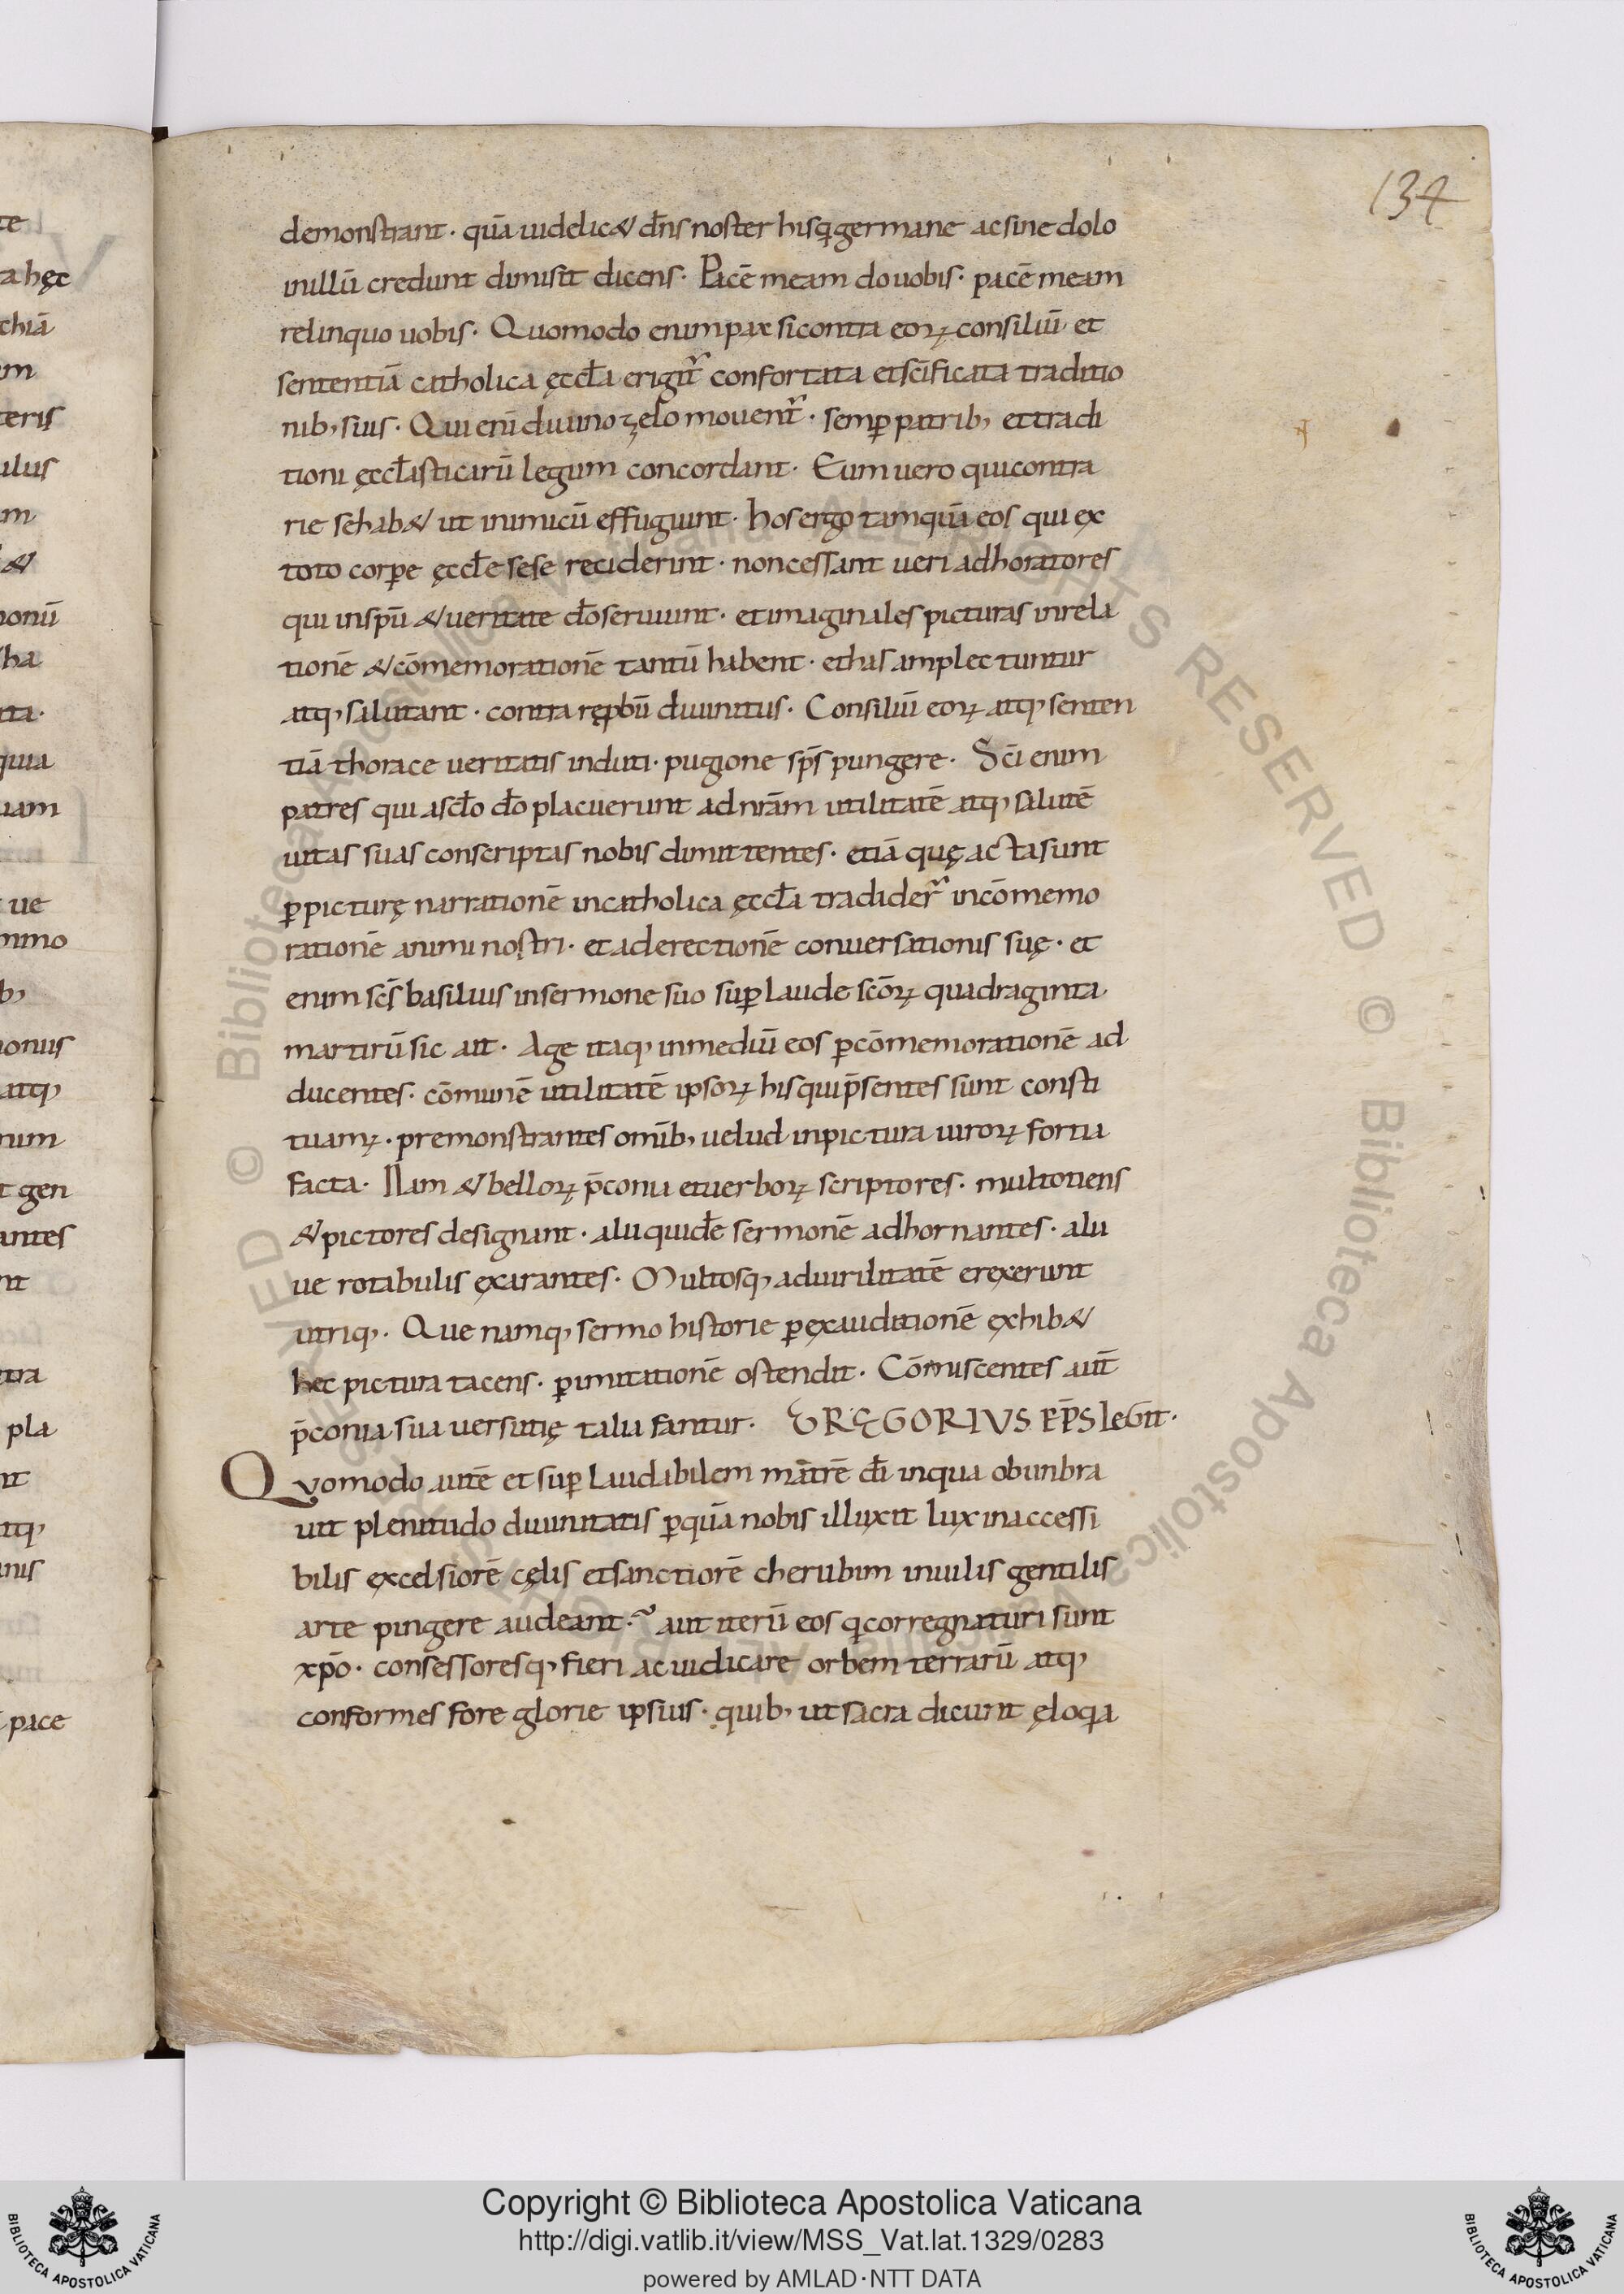 134
demonstrant · quā uidelic& dn̄s noster hisqͥ germane ac sine dolo
in illū credunt dimisit dicens · Pacē meam do uobis · pacē meam
relinquo uobis · Quomodo enim pax si contra eoꝝ consiliū et
sententiā catholica ęccła erigit᷑ confortata et sc̄ificata traditio
nib; suis · Qui eni diuino zelo mouent᷑ · semꝑ patrib; et tradi
tioni ęccłisticarū legum concordant · Eum uero qui contra
rie se hab& ut inimicū effugiunt · hos ergo tamquā eos qui ex
toto corꝑe ęccłe sese reciderint · non cessant ueri adhoratores
qui in sp̄ū & ueritate do͞ seruiunt · et imaginales picturas in rela
tionē & cōmemorationē tantū habent · et has amplectuntur
atq; salutant · contra ręꝑbū diuinitus · Consiliū eoꝝ atq; senten
tiā thorace ueritatis induti · pugione sp̄s pungere · Sc̄i enim
patres qui a scło do͞ placuerunt ad nr̄am utilitatē atq; salutē
uitas suas conscriptas nobis dimittentes · etiā quę acta sunt
ꝑ picturę narrationē in catholica ęccła tradider᷑ in cōmemo
rationē animi nostri · et ad erectionē conuersationis suę · et
enim sc̄s basilius in sermone suo suꝑ laude sc̄oꝝ quadraginta
martirū sic ait · Age itaq; in mediū eos ꝑ cōmemorationē ad
ducentes · cōmunē utilitatē ipsoꝝ his qui p̄sentes sunt consti
tuamꝝ · premonstrantes omīb; uelud in pictura uiroꝝ fortia
facta · Nam & belloꝝ p̄conia et uerboꝝ scriptores · multotiens
& pictores designant · alii quidē sermonē adhornantes · alii
ue rotabulis exarantes · Multosq; ad uirilitatē erexerunt
utriq; · Que namq; sermo historie ꝑ exauditionē exhib&
hec pictura tacens · ꝑ imitationē ostendit · Cōmiscentes aut̄
p̄conia sua uersutię talia fantur · GRĘGORIUS EP̄S legit ·
Quomodo autē et suꝑ laudabilem matrē dī in qua obunbra
uit plenitudo diuinitatis ꝑ quā nobis illuxit lux inaccessi
bilis excelsiorē cęlis et sanctiorē cherubim in uilis gentilis
arte pingere audeant · aut iterū eos qͥ corregnaturi sunt
xp̄o · consessoresq; fieri ac iudicare orbem terrarū atq;
conformes fore glorie ipsius · quib; ut sacra dicunt ęloqͥa
te
a hęc
chiā
m
teris
ilus
m
&
nonū
ha
ita ·
quia
uam
ue
mmo
b;
nonius
atq;
num
t gen
antes
nt
tra
pla
nt
atq;
inis
pace
© Biblioteca Apostolica Vaticana ALL RIGHTS RESERVED
Copyright © Biblioteca Apostolica Vaticana
http://digi.vatlib.it/view/MSS_Vat.lat.1329/0283
powered by AMLAD·NTT DATA
BIBLIOTECA APOSTOLICA VATICANA
BIBLIOTECA APOSTOLICA VATICANA